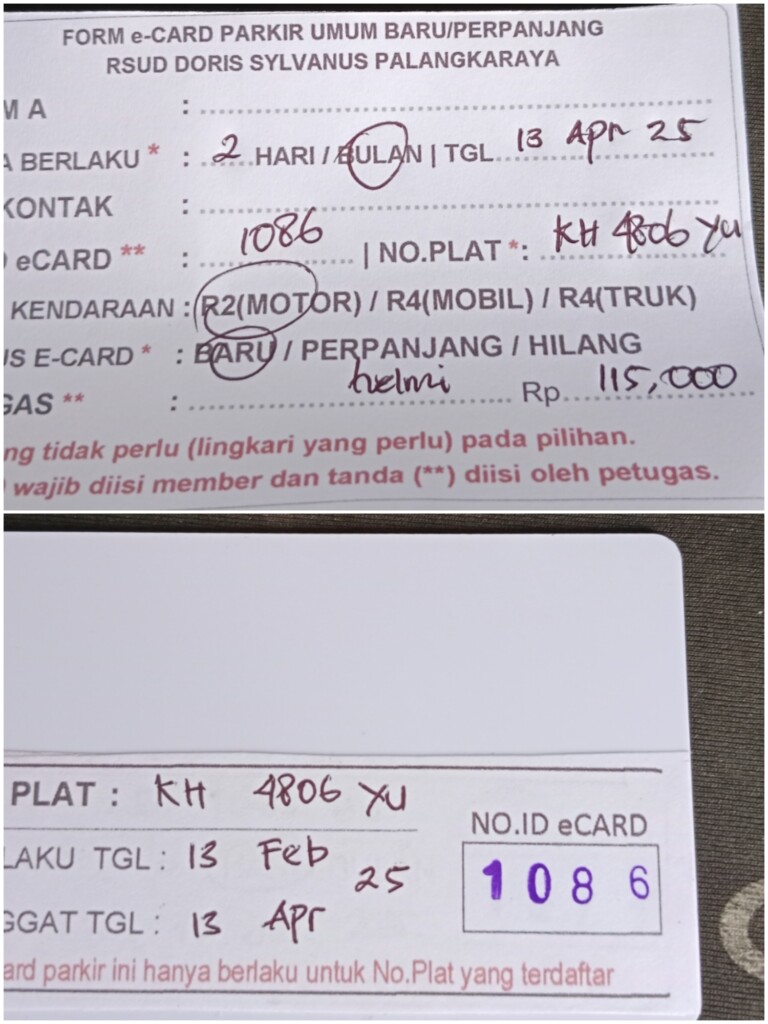 FORM e-CARD PARKIR UMUM BARU/PERPANJANG
RSUD DORIS SYLVANUS PALANGKARAYA
M A :
A BERLAKU * : 2 HARI / BULAN | TGL 13 Apr 25
KONTAK :
eCARD ** : 1086 | NO.PLAT *: KH 4806 YU
KENDARAAN : R2(MOTOR) / R4(MOBIL) / R4(TRUK)
US E-CARD * : BARU / PERPANJANG / HILANG
GAS ** : helmi Rp. 115,000
ng tidak perlu (lingkari yang perlu) pada pilihan.
) wajib diisi member dan tanda (**) diisi oleh petugas.
PLAT : KH 4806 YU
LAKU TGL : 13 Feb 25
GGAT TGL : 13 Apr
NO.ID eCARD
1086
ard parkir ini hanya berlaku untuk No.Plat yang terdaftar